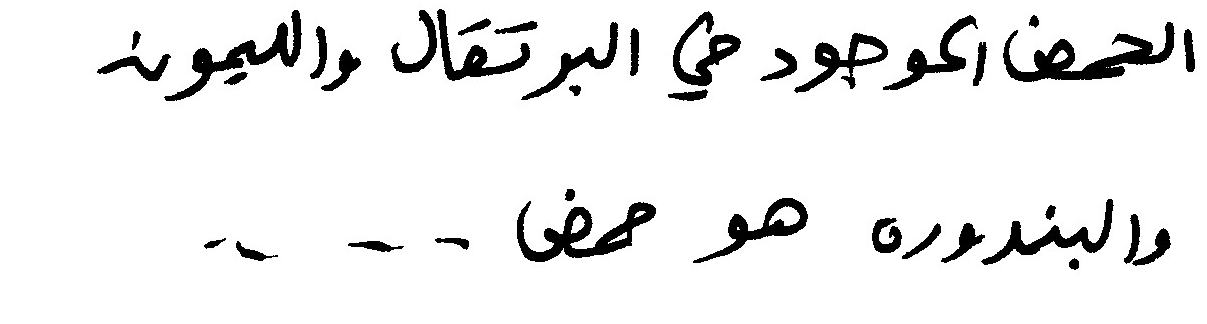 الحمض الموجود في البرتقال والليمون
والبندوره هو حمض - - - - -